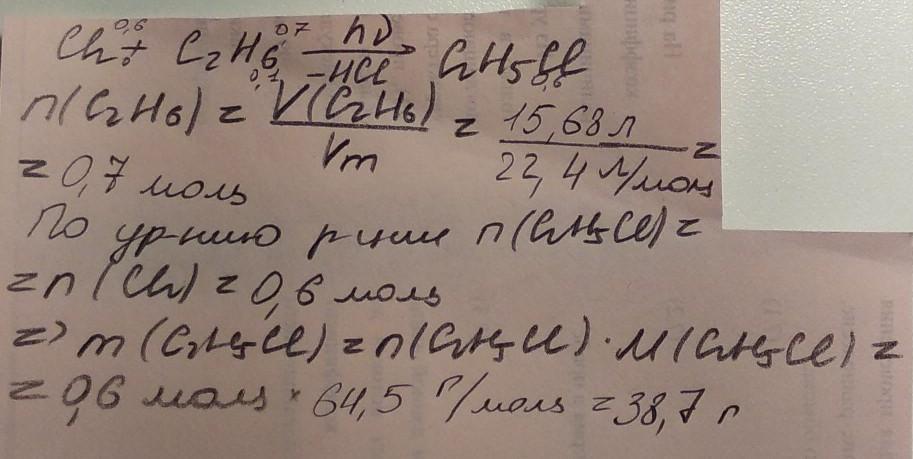 Cl₂ 0,6 + C₂H₆ 0,7 hν → −HCl C₂H₅Cl
n(C₂H₆) = V(C₂H₆)/Vm = 15,68 л / 22,4 л/моль =
= 0,7 моль
По ур-нию р-ции n(C₂H₅Cl) =
= n(Cl₂) = 0,6 моль
=> m(C₂H₅Cl) = n(C₂H₅Cl) · M(C₂H₅Cl) =
= 0,6 моль · 64,5 г/моль = 38,7 г